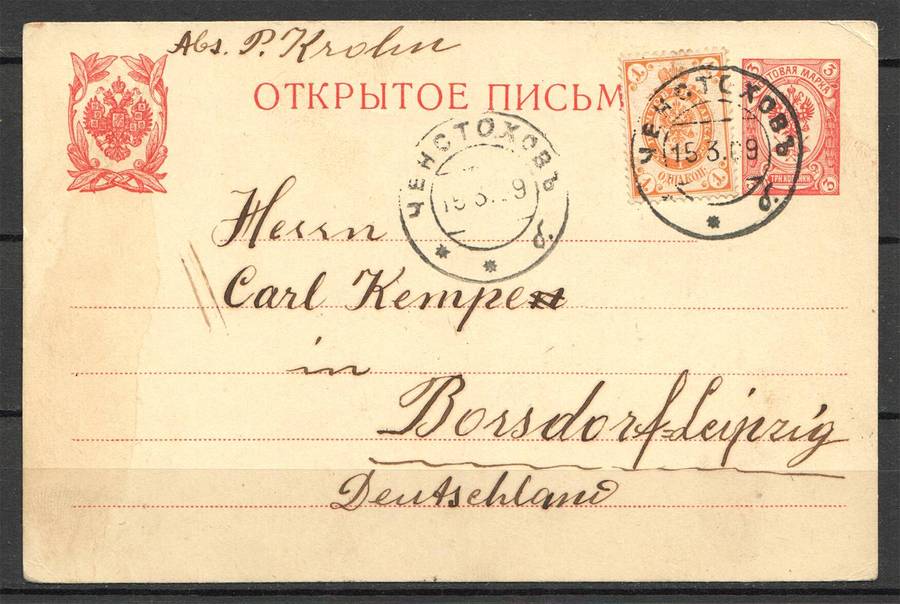 Abs. P. Krohn
ОТКРЫТОЕ ПИСЬМ
3 3
ПОЧТОВАЯ МАРКА
ТРИ КОПѢЙКИ
3
1 1 1
ОДНА КОП.
ЧЕНСТОХОВЪ
15.3.09
ЧЕНСТОХОВЪ
15.3. 9
Herrn
Carl Kempe
in
Borsdorf-Leipzig
Deutschland